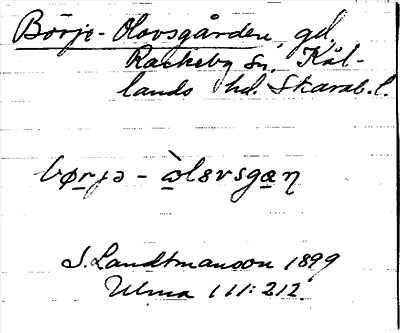 Börje-Olovsgården, gd.
Rackeby sn, Kål-
lands hd. Skarab.l.
børjə - òlɛvsgan
S. Landtmanson 1899
Ulma 111:212.